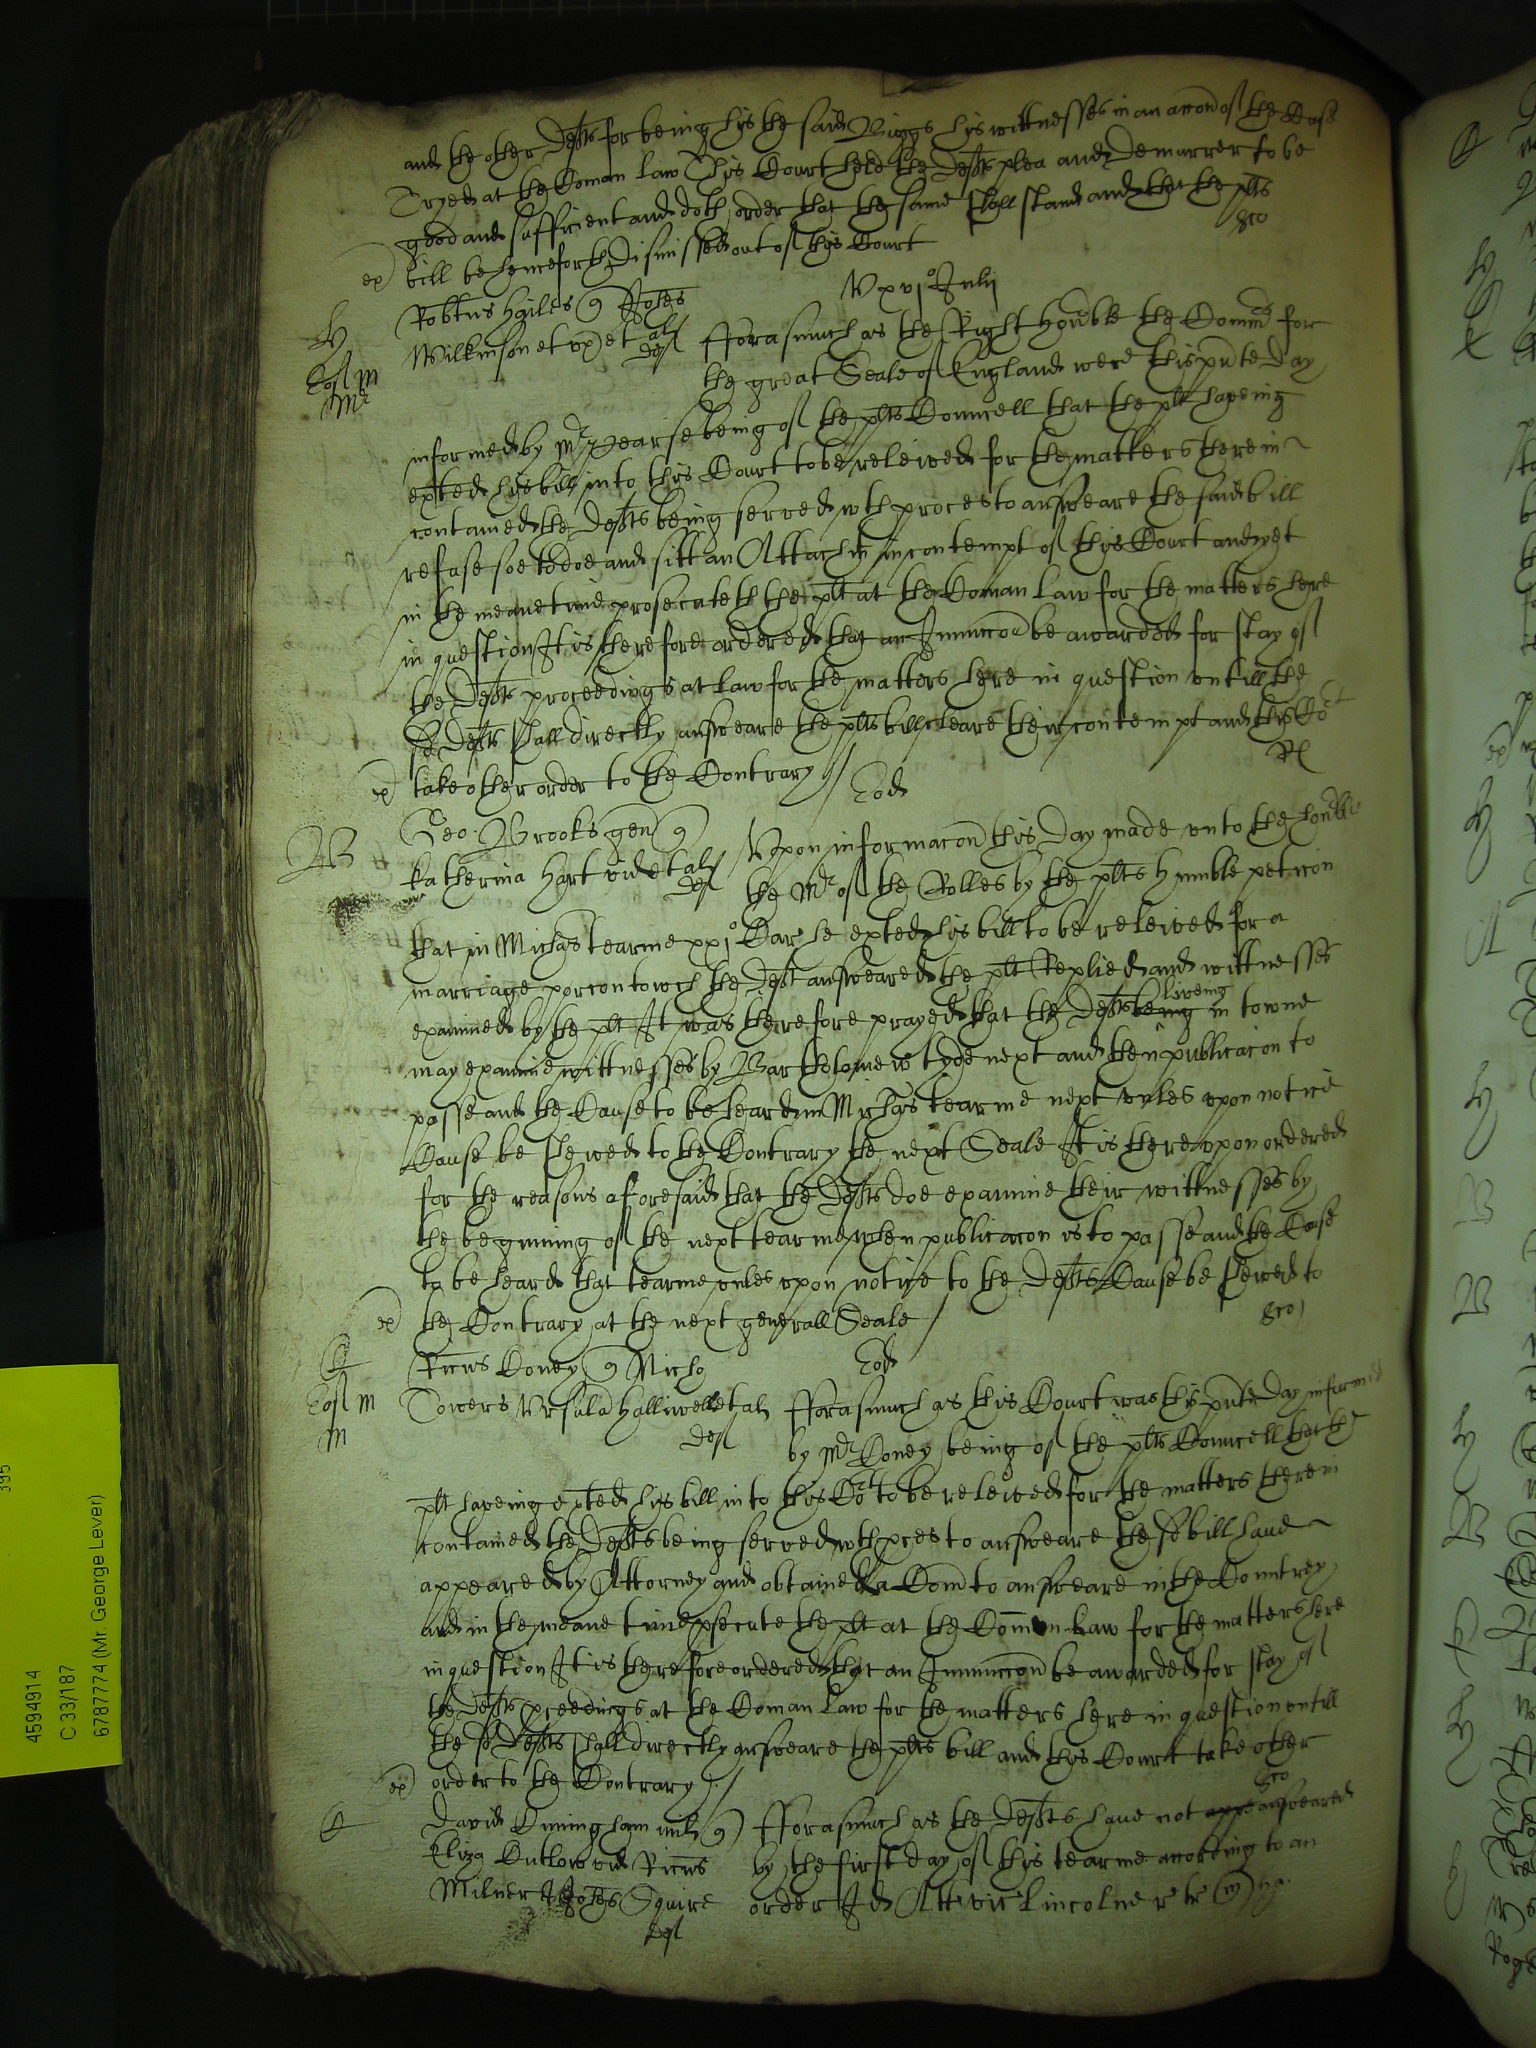 and the other Defts for being his the said Briggs his wittnesses in an accon of the Case
Tryed at the Coman law This Court held the Defts plea and Demurrer to be
good and sufficient and doth order that the same shall stand and that the plts
ex) bill be henceforth Dismissed out of this Court
Vxvj° Julij
H Robtus Hailes q Johes
Wilkinson et ux et al def
fforasmuch as the Right honble the Comrs for
the great Seale of England were this pnte day
informed by Mr Pearse being of the plts Councell that the plt haveing
exted his bill into this Court to be releived for the matters therein
contained the Defts being served wth proces to answeare the said bill
refuse soe to doe and sitt an Attachmt in contempt of this Court and yet
in the meane time prosecuteth the plt at the Coman law for the matters here
in question It is therefore ordered that an Iniunccon be awarded for stay of
the Defts proceedings at law for the matters here in question untill the
sd Defts shall directly answeare the plts bill cleare their contempt and this Cort
ex) take other order to the Contrary /
Rl
Eod
B Geo: Brooks gen q
Katherina Hart vid et al def
Upon informacon this day made unto the honble
the Mr of the Rolles by the plts humble peticon
that in Michas tearme xxj° Car he exted his bill to be releived for a
marriage porcon to wch the Deft answeared the plt Replied and wittnesses
examined by the plt It was therefore prayed that the Defts being liveing in towne
may examine wittnesses by Bartholomew tyde next and then publicacon to
passe and the Cause to be heard in Michas tearme next unles upon notice
Cause be shewed to the Contrary the next Seale It is thereupon ordered
for the reasons aforesaid that the Defts doe examine their wittnesses by
the beginning of the next tearme when publicacon is to passe and the Case
to be heard that tearme unles upon notice to the Defts Cause be shewed to
ex) the Contrary at the next generall Seale /
Eod
Ricus Coney q Nicho
Towers Ursula Halliwell et al def
fforasmuch as this Court was this pnte day informed
by Mr Coney being of the plts Councell that the
plt haveing exted his bill into this Cort to be releived for the matters therein
contained the Defts being served wth pces to answeare the sd bill haue
appeared by Attorney and obtained a Com to answeare in the Countrey
and in the meane time psecute the plt at the Common Law for the matters here
in question It is therefore ordered that an Iniunccon be awarded for stay of
the Defts pceedings at the Coman Law for the matters here in question untill
the sd Defts shall directly answeare the plts bill and this Court take other
ex) order to the Contrary /
David Cuningham mil q
Eliza Cutlow vid Ricus
Milner & Johes Squire
def
fforasmuch as the Defts haue not appe answeared
by the first day of this tearme according to an
order Id Att vic Lincolne
4594914
C 33/187
6787774 (Mr. George Lever)